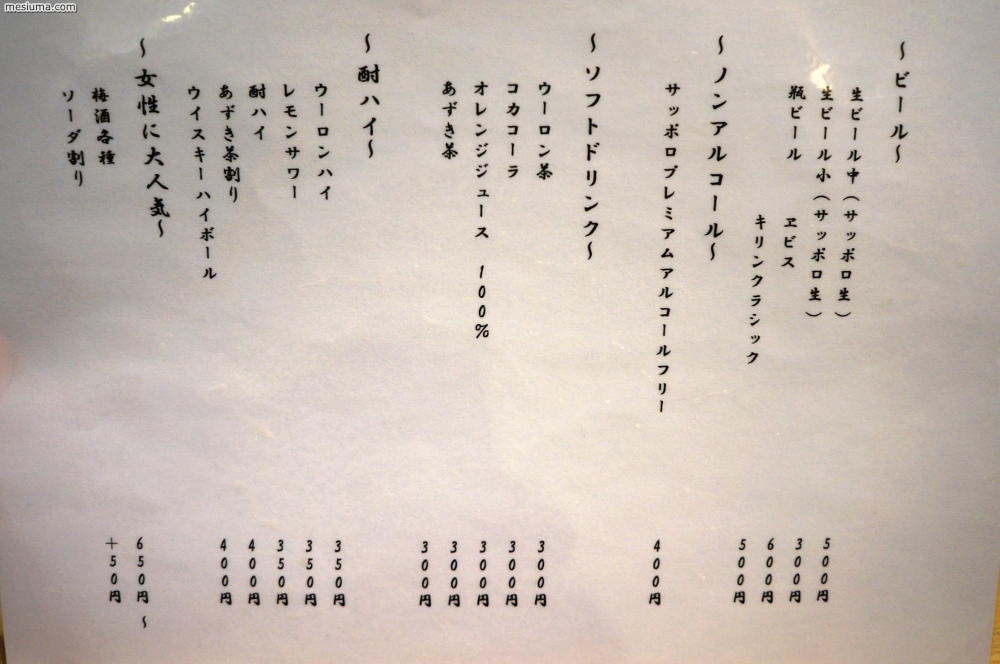 mesiuma.com
～ビール～
生ビール中（サッポロ生） 500円
生ビール小（サッポロ生） 300円
瓶ビール
ヱビス 600円
キリンクラシック 500円
～ノンアルコール～
サッポロプレミアムアルコールフリー 400円
～ソフトドリンク～
ウーロン茶 300円
コカコーラ 300円
オレンジジュース 100% 300円
あずき茶 300円
300円
～酎ハイ～
ウーロンハイ 350円
レモンサワー 350円
酎ハイ 350円
あずき茶割り 400円
ウイスキーハイボール 400円
～女性に大人気～
梅酒各種 650円～
ソーダ割り +50円